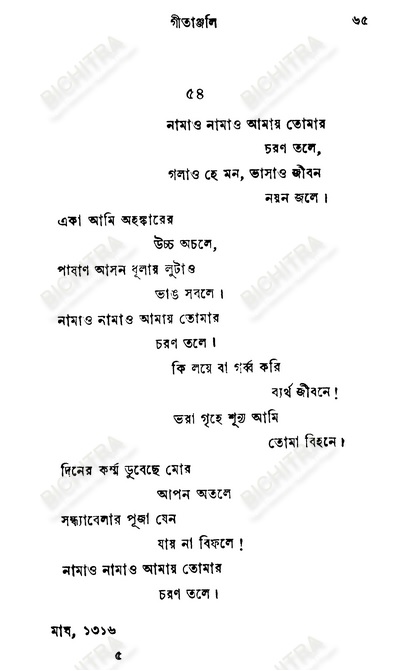 গীতাঞ্জলি ৬৫
৫৪
নামাও নামাও আমায় তোমার
চরণ তলে,
গলাও হে মন, ভাসাও জীবন
নয়ন জলে।
একা আমি অহঙ্কারের
উচ্চ অচলে,
পাষাণ আসন ধূলায় লুটাও
ভাঙ সবলে।
নামাও নামাও আমায় তোমার
চরণ তলে।
কি লয়ে বা গর্ব্ব করি
ব্যর্থ জীবনে!
ভরা গৃহে শূন্য আমি
তোমা বিহনে।
দিনের কর্ম্ম ডুবেছে মোর
আপন অতলে
সন্ধ্যাবেলার পূজা যেন
যায় না বিফলে!
নামাও নামাও আমায় তোমার
চরণ তলে।
মাঘ, ১৩১৬
৫
BICHITRA
BICHITRA
BICHITRA
BICHITRA
BICHITRA
BICHITRA
BICHITRA
BICHITRA